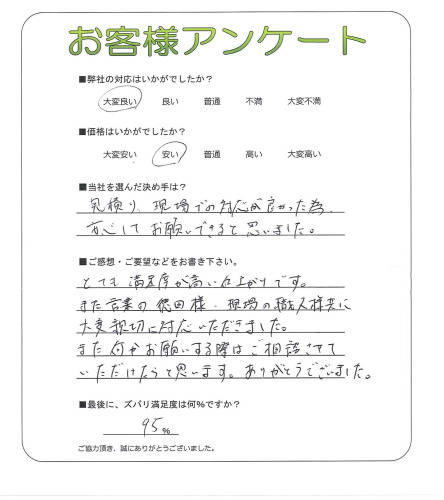 お客様アンケート
■弊社の対応はいかがでしたか？
大変良い 良い 普通 不満 大変不満
■価格はいかがでしたか？
大変安い 安い 普通 高い 大変高い
■当社を選んだ決め手は？
見積り、現場での対応が良かった為、
安心してお願いできると思いました。
■ご感想・ご要望などをお書き下さい。
とても満足度が高い仕上がりです。
また営業の徳田様、現場の職人様共に
大変親切に対応いただきました。
また何かお願いする際はご相談させて
いただけたらと思います。ありがとうございました。
■最後に、ズバリ満足度は何%ですか？
95%
ご協力頂き、誠にありがとうございました。